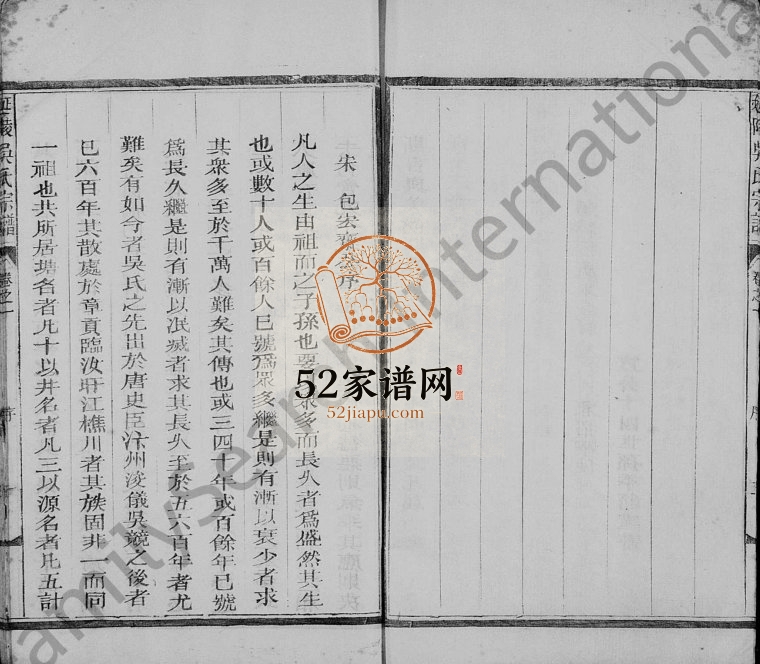 延陵吳氏宗譜
卷之一
序
宋 包宏齋 序
凡人之生由祖而之子孫也 眾多而長久者為盛然其生
也或數十人或百餘人已號為眾多繼是則有漸以衰少者求
其眾多至於千萬人難矣其傳也或三四十年或百餘年已號
為長久繼是則有漸以泯滅者求其長久至於五六百年者尤
難矣有如今者吳氏之先出於唐史臣汴州浚儀吳競之後者
已六百年其散處於章貢臨汝盱江樵川者其族固非一而同
一祖也其所居塘名者凡十以井名者凡三以源名者凡五計
延陵吳氏宗譜
卷之一
序
52家谱网
52jiapu.com
FamilySearch International